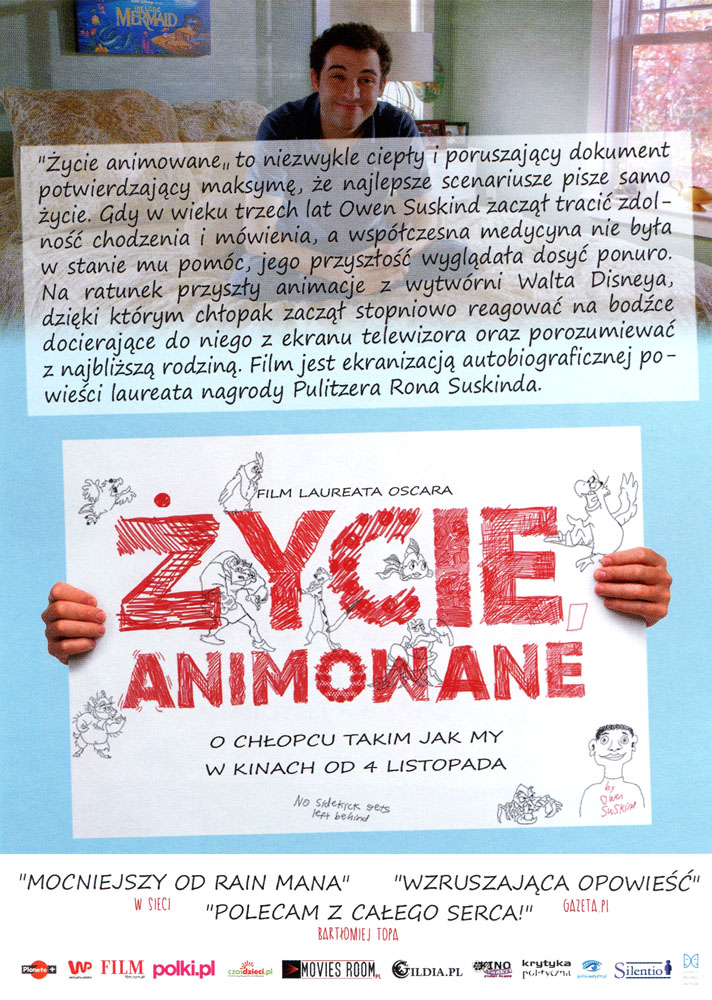 THE LITTLE
MERMAID
"Życie animowane„ to niezwykle ciepły i poruszający dokument
potwierdzający maksymę, że najlepsze scenariusze pisze samo
życie. Gdy w wieku trzech lat Owen Suskind zaczął tracić zdol-
ność chodzenia i mówienia, a współczesna medycyna nie była
w stanie mu pomóc, jego przyszłość wyglądała dosyć ponuro.
Na ratunek przyszły animacje z wytwórni Walta Disneya,
dzięki którym chłopak zaczął stopniowo reagować na bodźce
docierające do niego z ekranu telewizora oraz porozumiewać
z najbliższą rodziną. Film jest ekranizacją autobiograficznej po-
wieści laureata nagrody Pulitzera Rona Suskinda.
FILM LAUREATA OSCARA
ŻYCIE,
ANIMOWANE
O CHŁOPCU TAKIM JAK MY
W KINACH OD 4 LISTOPADA
No sidekick gets
left behind
by
Owen
Suskind
"MOCNIEJSZY OD RAIN MANA" "WZRUSZAJĄCA OPOWIEŚĆ"
W SIECI GAZETA.PL
"POLECAM Z CAŁEGO SERCA!"
BARTŁOMIEJ TOPA
Planete+ WP FILM polki.pl czasdzieci.pl MOVIES ROOM.PL GILDIA.PL KINO krytyka polityczna Silentio